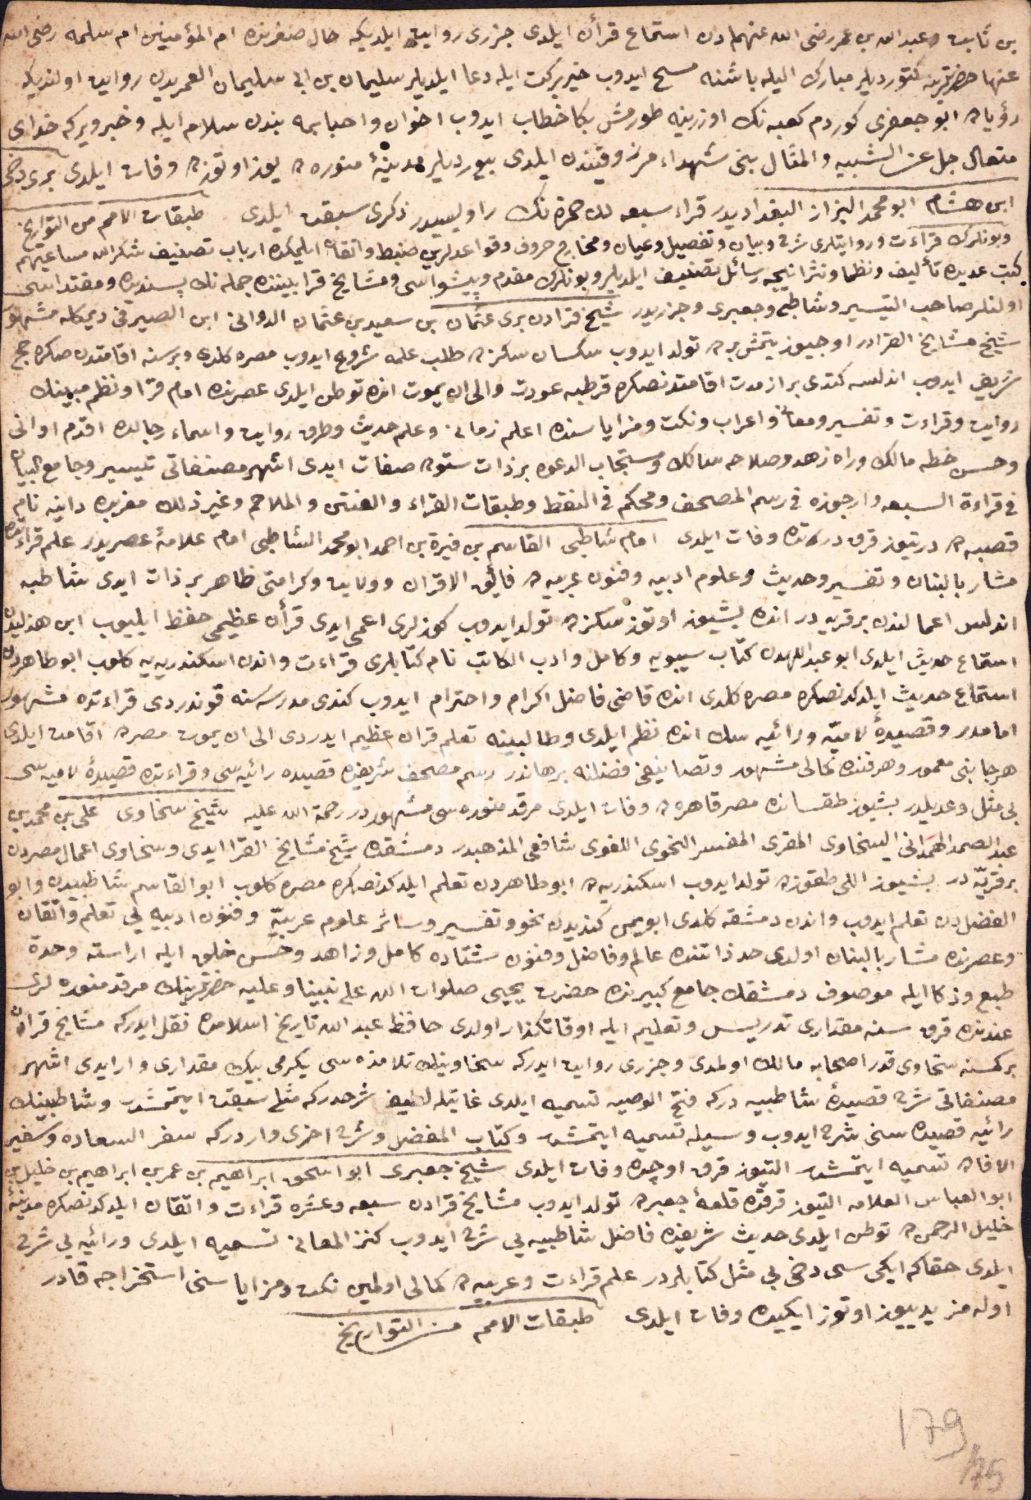 بن ثابت وعبدالله بن عمر رضى الله عنهمادن استماع قرأن ايلدى جزرى روايت ايلديكه حال صغرنده ام المؤمنين ام سلمه رضى الله
عنها حضرتلرينه كتورديلر مبارك اليله باشنه مسح ايدوب خير بركت ايله دعا ايلديلر سليمان بن ابى سليمان العمريدن روايت اولنديكه
رؤياده ابو جعفرى كوردم كعبه نك اوزرينه طورمش بكا خطاب ايدوب اخوان و احبابمه بندن سلام ايله و خبر ويركه خداى
متعال جل عن الشبيه والمثال بنى شهداء مرزوقيندن ايلدى بيورديلر مدينۀ منوره ده يوز اوتوزده وفات ايلدى برى دخى
ابن هشام ابو محمد البزاز البغداديدر قراء سبعه دن حمزه نك راويسيدر ذكرى سبقت ايلدى طبقات الامم من التواريخ
وبونلرك قراءت و روايتلرى شرح و بيان و تفصيل و عيان و مخارج حروف و قواعدلرين ضبط و اتقان ايلمكده ارباب تصنيف شكر الله مساعيهم
كتب عديده تأليف و نظما و نثرا نيجه رسائل تصنيف ايلديلر و بونلرك مقدم و پيشواسى و مشايخ قرا بيننده جمله نك پسنديده و مقتداسى
اولنلر صاحب التيسير و شاطبى و جعبرى و جزريدر شيخ قرادن برى عثمان بن سعيد بن عثمان الدوانى ابن الصيرفى ديمكله مشهور
شيخ مشايخ القرادر اوچيوز يتمش برده تولد ايدوب سكسان سكزده طلب علمه شروع ايدوب مصره كلدى و برسنه اقامتدن صكره حج
شريف ايدوب اندلسه كتدى براز مدت اقامتدنصكره قرطبه عودت و الى ان يموت انده توطن ايلدى عصرنده امام قرا و نظم مبينك
روايت و قراءت و تفسير و معانى و اعراب و نكت و مزاياسنده اعلم زمانى و علم حديث و طرق روايت و اسماء رجالده اقدم اوانى
و حسن خطه مالك و راه زهد و صلاحه سالك و مستجاب الدعوه بر ذات ستوده صفات ايدى اشهر مصنفاتى تيسير و جامع البيان
فى قراءة السبعه و ارجوزه فى رسم المصحف و محكم فى النقط و طبقات القراء و الفتن و الملاحم و غير ذلك مغربده دانيه نام
قصبه ده درتيوز قرق درتده وفات ايلدى امام شاطبى القاسم بن فيرة بن احمد ابو محمد الشاطبى امام علامۀ عصريدر علم قراءتده
مشار بالبنان و تفسير و حديث و علوم ادبيه و فنون عربيه ده فائق الاقران و ولايت و كرامتى ظاهر بر ذات ايدى شاطبه
اندلس اعمالندن برقريه در انده بشيوز اوتوز سكزده تولد ايدوب كوزلرى اعمى ايدى قرأن عظيمى حفظ ايليوب ابن هذيلدن
استماع حديث ايلدى ابو عبداللهدن كتاب سيبويه و كامل و ادب الكاتب نام كتابلرى قراءت و اندن اسكندريه يه كلوب ابو طاهردن
استماع حديث ايلدكدنصكره مصره كلدى انده قاضى فاضل اكرام و احترام ايدوب كندى مدرسه سنه قوندردى قراءتده مشهور
امامدر و قصيدۀ لاميه و رائيه سن انده نظم ايلدى و طالبينه تعلم قران عظيم ايدردى الى ان يموت مصرده اقامت ايلدى
هر جانبى معمور و هر فنده كمالى مشهور و تصانيفى فضلنه برهاندر رسم مصحف شريفده قصيده رائيه سى و قراءتده قصيدۀ لاميه سى
بى مثل و عديلدر بشيوز طقسانده مصر قاهره ده وفات ايلدى مرقد منوره سى مشهوردر رحمة الله عليه شيخ سخاوى على بن محمد بن
عبد الصمد الهمدانى السخاوى المقرى المفسر النحوى اللغوى شافعى المذهبدر دمشقده شيخ مشايخ القرا ايدى و سخاوى اعمال مصردن
برقريّه در بشيوز اللى طقوزده تولد ايدوب اسكندريه ده ابو طاهردن تعلم ايلدكدنصكره مصره كلوب ابو القاسم شاطبيدن و ابو
الفضلدن تعلم ايدوب و اندن دمشقه كلدى ابو يمن كنديدن نحو و تفسير و سائر علوم عربيّه و فنون ادبيه يى تعلم و اتقان
و عصرنده مشار بالبنان اولدى حد ذاتنده عالم و فاضل و فنون شتاده كامل و زاهد و حسن خلق ايله اراسته و حدة
طبع و ذكا ايله موصوف دمشقك جامع كبيرنده حضرت يحيى صلوات الله على نبينا و عليه حضرتلرينك مرقد منوره لرى
عندنده قرق سنه مقدارى تدريس و تعليم ايله اوقاتكذار اولدى حافظ عبد الله تاريخ اسلامده نقل ايدركه مشايخ قرادن
بركمسنه سخاوى قدر اصحابه مالك اولمدى و جزرى روايت ايدركه سخاوينك تلامذه سى يكرمى بيك مقدارى وارايدى اشهر
مصنفاتى شرح قصيدۀ شاطبيه دركه فتح الوصيد تسميه ايلدى غايتله لطيف شرحدركه مثلى سبقت ايتمشدر و شاطبينك
رائيه قصيده سنى شرح ايدوب وسيله تسميه ايتمشدر و كتاب المفضل و شرح اخرى واردركه سفر السعاده و سفير
الافاده تسميه ايتمشدر التيوز قرق اوچده وفات ايلدى شيخ جعبرى ابو اسحق ابراهيم بن عمر بن ابراهيم بن خليل بن
ابو العباس العلامه التيوز قرقده قلعۀ جعبرده تولد ايدوب مشايخ قرادن سبعه و عشره قراءت و اتقان ايلدكدنصكره مدينۀ
خليل الرحمن ده توطن ايلدى حديث شريفده فاضل شاطبيه يى شرح ايدوب كنز المعانى تسميه ايلدى و رائيه يى شرح
ايلدى حقاكه ايكى سى دخى بى مثل كتابلردر علم قراءت و عربيه ده كمالى اولمين نكت و مزاياسنى استخراجه قادر
اوله مز يدييوز اوتوز ايكيده وفات ايلدى طبقات الامم من التواريخ
179
175